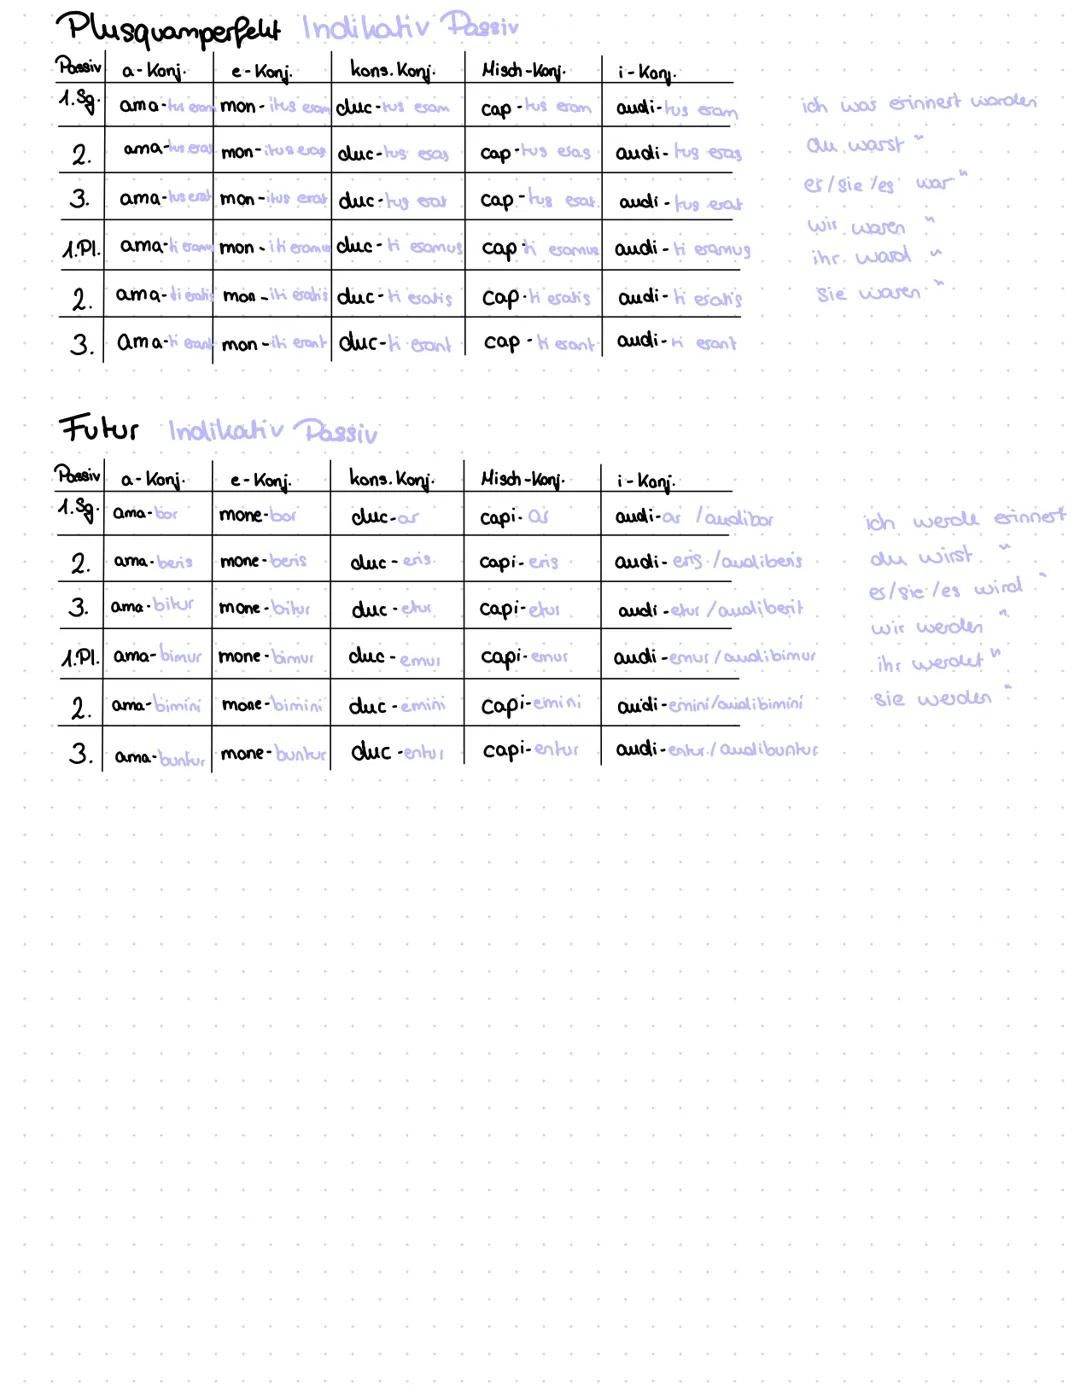 Plusquamperfekt Indikativ Passiv
Passiv a-Konj. e-Konj. kons. Konj. Misch-Konj. i-Konj.
1.Sg. ama-tus eram mon-itus eram duc-tus eram cap-tus eram audi-tus eram ich war erinnert worden
2. ama-tus eras mon-itus eras duc-tus eras cap-tus eras audi-tus eras du warst "
3. ama-tus erat mon-itus erat duc-tus erat cap-tus erat audi-tus erat er/sie/es war "
1.Pl. ama-ti eramus mon-iti eramus duc-ti eramus cap-ti eramus audi-ti eramus wir waren "
ihr ward "
2. ama-ti eratis mon-iti eratis duc-ti eratis cap-ti eratis audi-ti eratis sie waren "
3. ama-ti erant mon-iti erant duc-ti erant cap-ti erant audi-ti erant
Futur Indikativ Passiv
Passiv a-Konj. e-Konj. kons. Konj. Misch-Konj. i-Konj.
1.Sg. ama-bor mone-bor duc-ar capi-ar audi-ar /audibor ich werde erinnert
2. ama-beris mone-beris duc-eris capi-eris audi-eris /audiberis du wirst "
3. ama-bitur mone-bitur duc-etur capi-etur audi-etur /audiberit er/sie/es wird "
1.Pl. ama-bimur mone-bimur duc-emur capi-emur audi-emur /audibimur wir werden "
ihr werdet "
2. ama-bimini mone-bimini duc-emini capi-emini audi-emini/audibimini sie werden "
3. ama-buntur mone-buntur duc-entur capi-entur audi-entur/ audibuntur